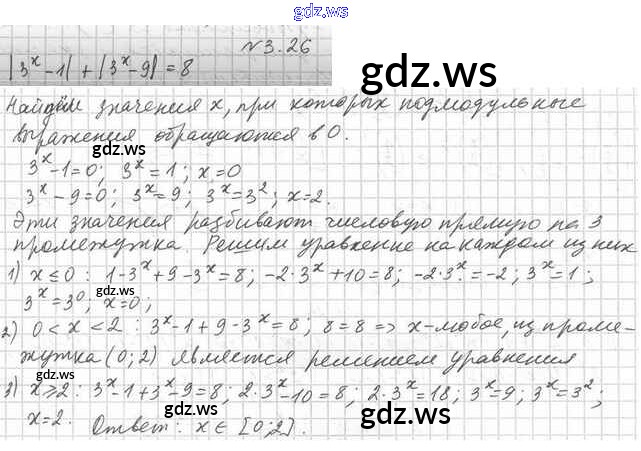 gdz.ws
№3.26
|3ˣ-1| + |3ˣ-9| = 8
gdz.ws
Найдём значения x, при которых подмодульные
выражения обращаются в 0.
3ˣ-1=0; 3ˣ=1; x=0
3ˣ-9=0; 3ˣ=9; 3ˣ=3²; x=2.
gdz.ws
Эти значения разбивают числовую прямую на 3
промежутка. Решим уравнение на каждом из них
1) x≤0: 1-3ˣ+9-3ˣ=8; -2·3ˣ+10=8; -2·3ˣ=-2; 3ˣ=1;
gdz.ws
3ˣ=3⁰, x=0;
2) 0<x<2: 3ˣ-1+9-3ˣ=8; 8=8 => x-любое, из проме-
жутка (0;2) является решением уравнения
gdz.ws
3) x≥2: 3ˣ-1+3ˣ-9=8; 2·3ˣ-10=8; 2·3ˣ=18; 3ˣ=9; 3ˣ=3²;
x=2. Ответ: x∈[0;2].
gdz.ws
gdz.ws